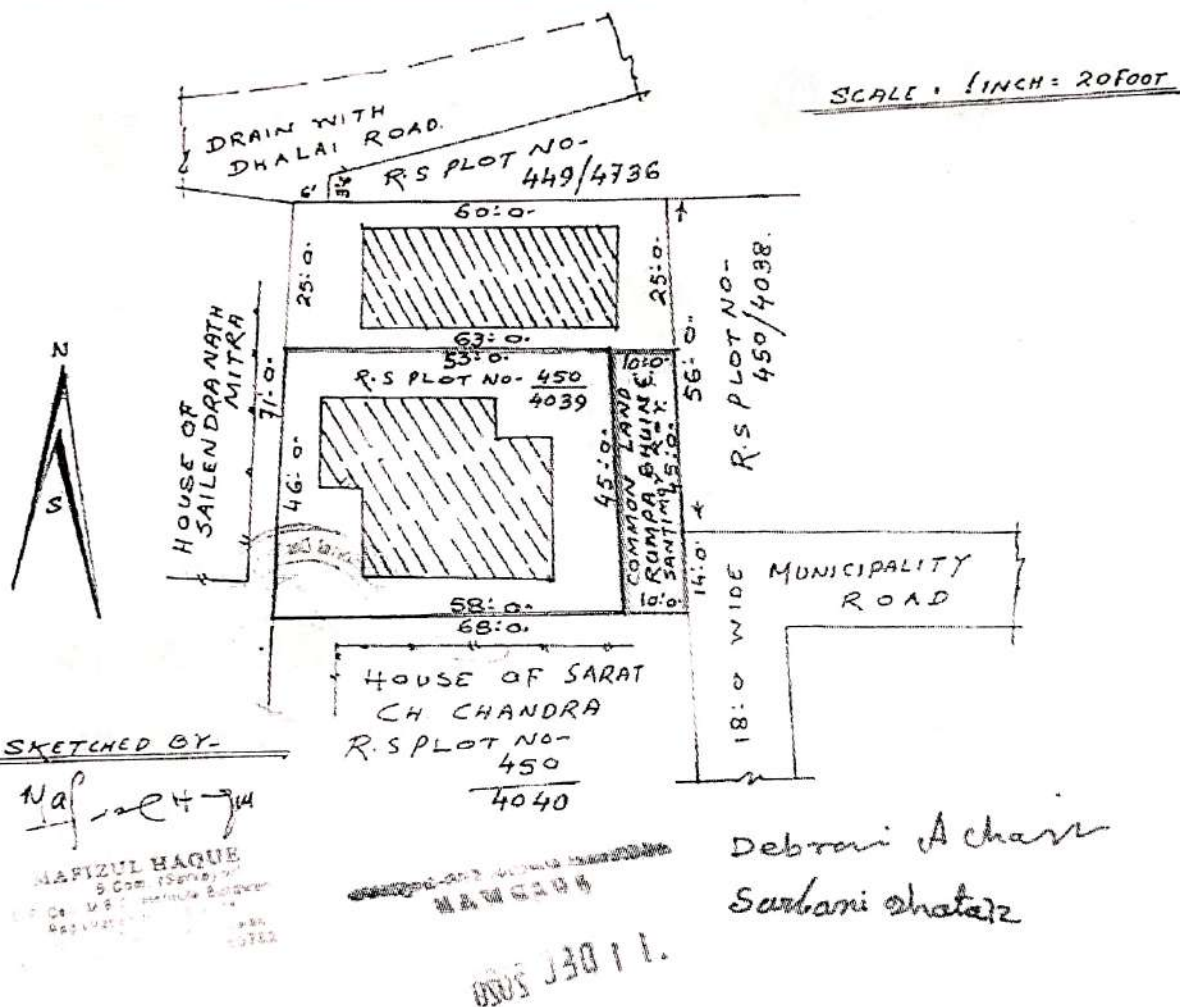 SCALE . 1 INCH = 20 FOOT
DRAIN WITH
DHALAI ROAD.
R.S PLOT NO-
449/4736
6'
3'6"
60:0-
25:0-
25:0-
63:0-
53:0-
R.S PLOT NO- 450
4039
10:0-
N
S
HOUSE OF
SAILENDRA NATH
MITRA
71:0-
46:0
45:0-
COMMON LAND
RUMPA BHUIN &
45:0-
56:0-
R.S PLOT NO-
450/4038.
14:0
10:0-
58:0-
68:0-
18:0 WIDE
MUNICIPALITY
ROAD
HOUSE OF SARAT
CH. CHANDRA
R.S PLOT NO-
450
4040
SKETCHED BY-
MAFIZUL HAQUE
Debrani Achar
Sarbani
11 DEC 2020